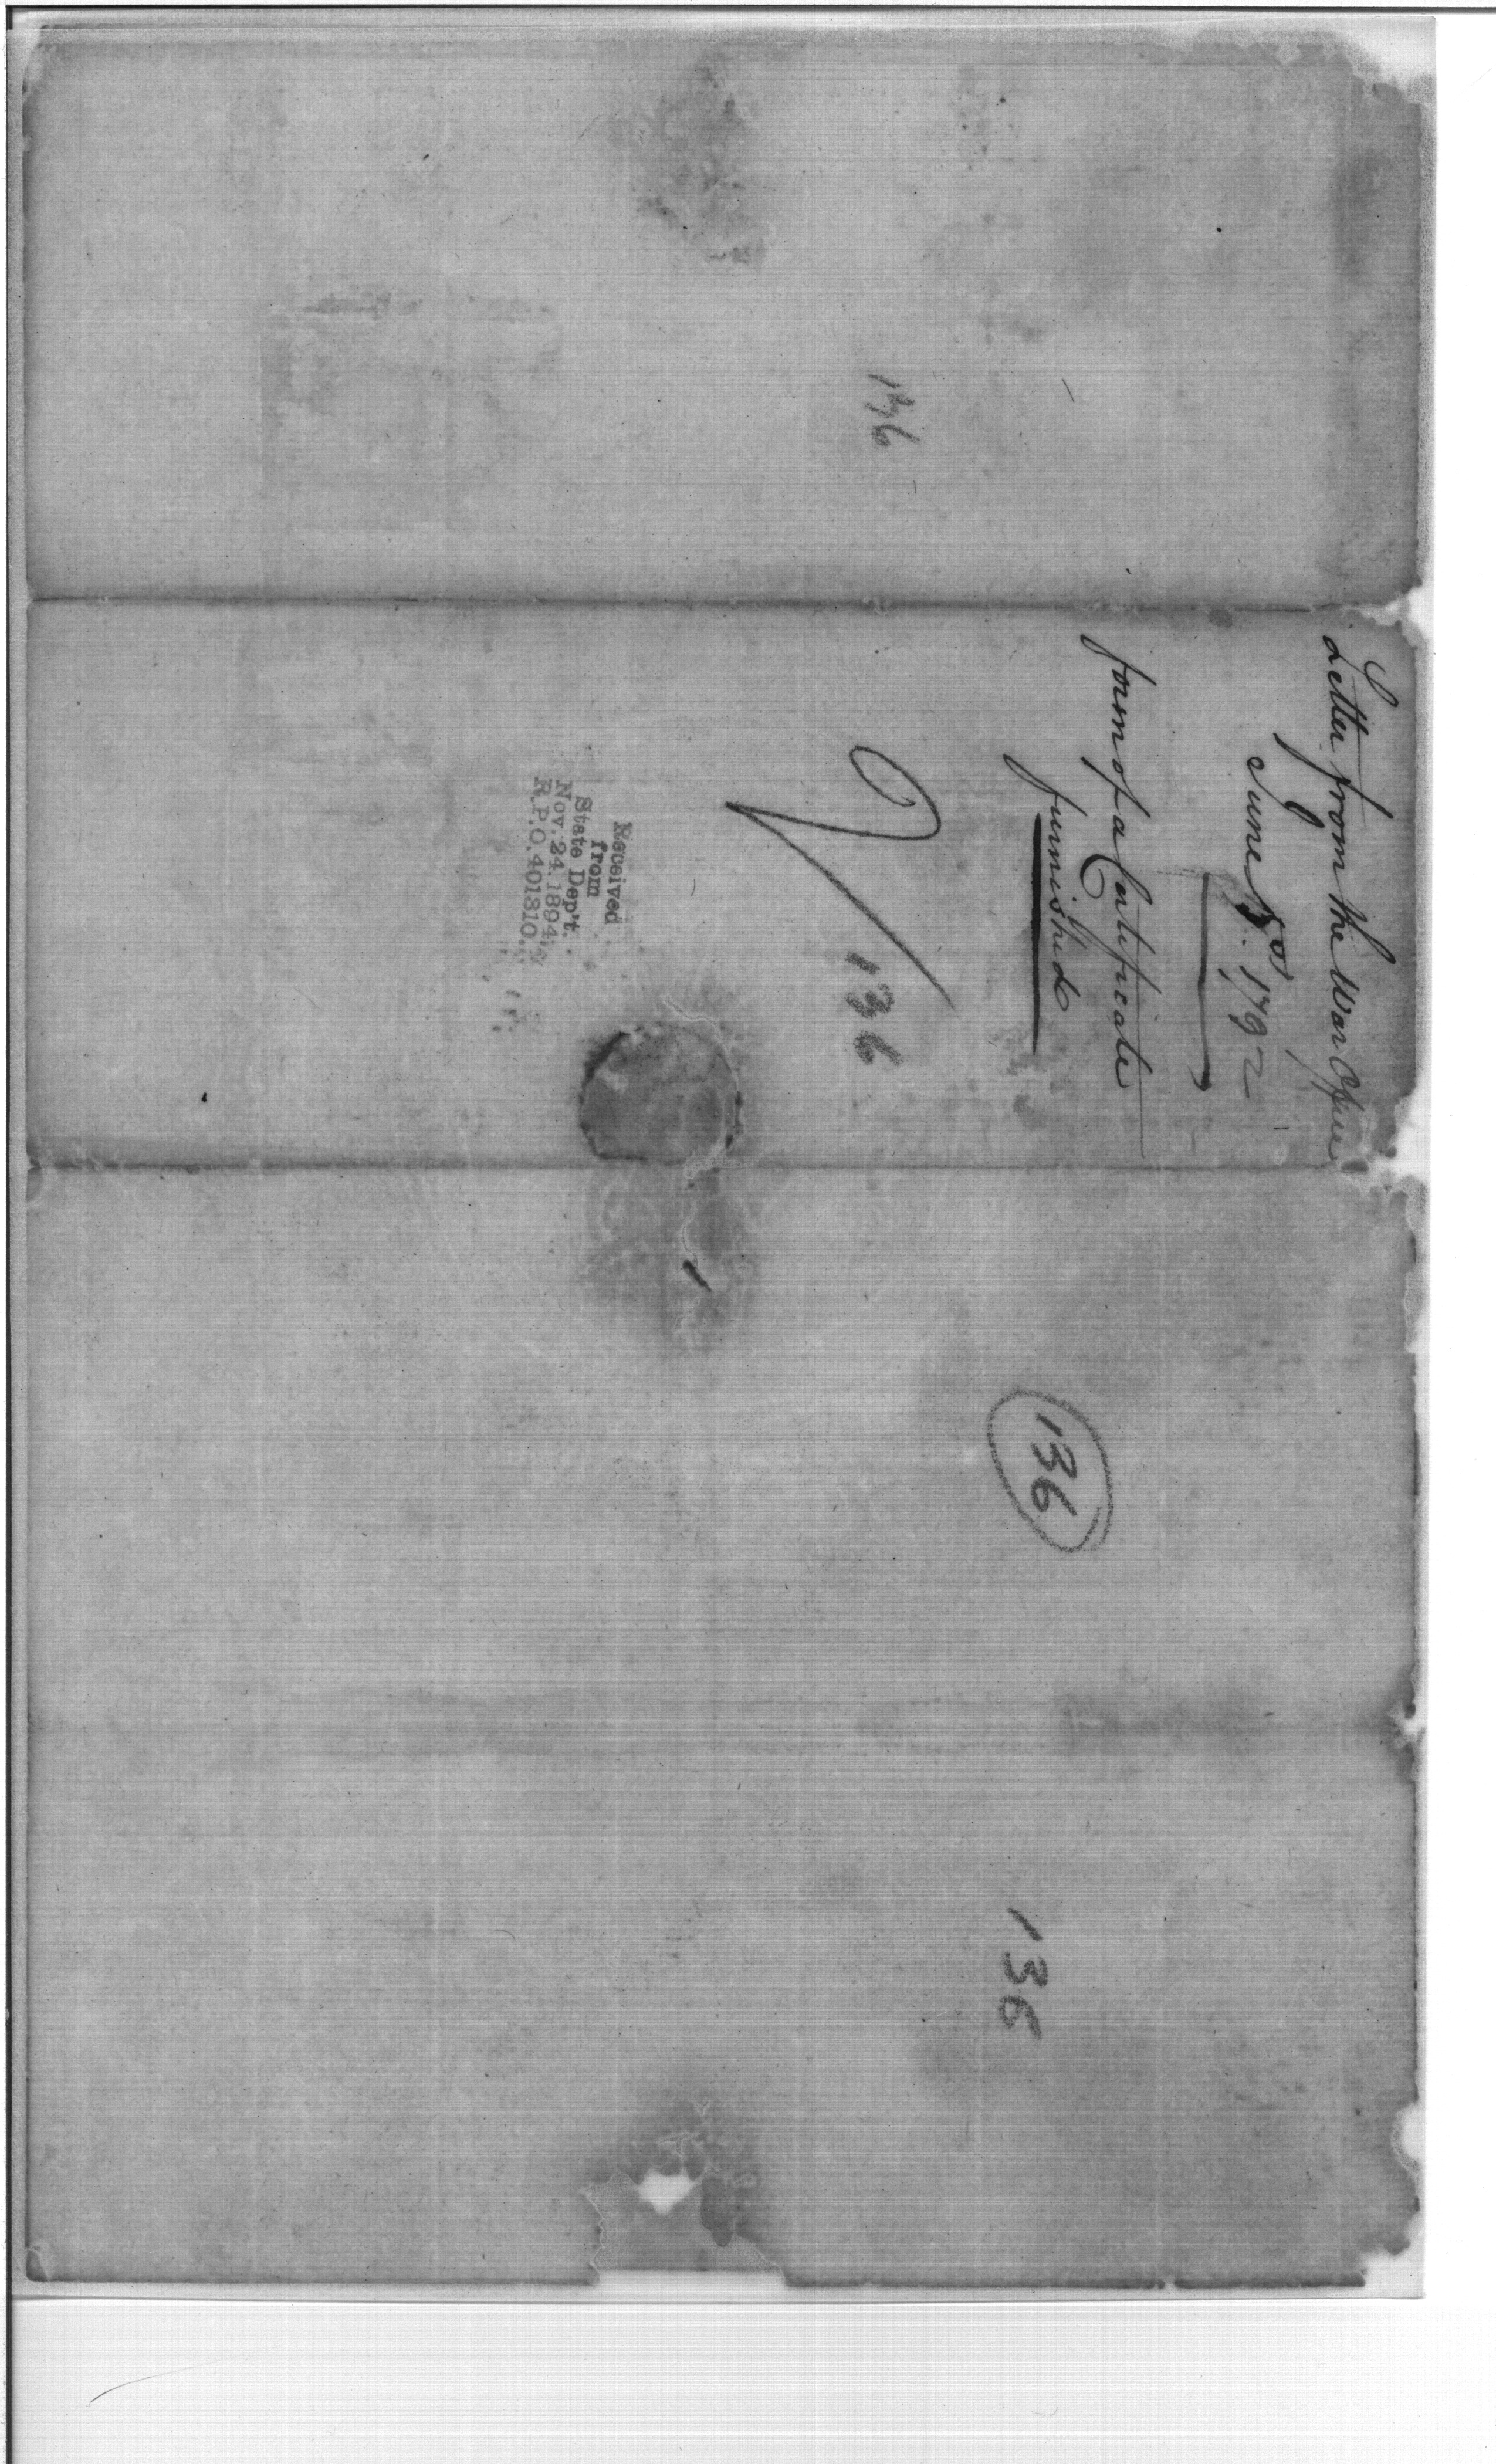 136
Letter from the War Office
June 1792
form of a Certificate
furnished
136
Received
from
State Dep't.
Nov. 24, 1894,
R.P.O. 401310.
136
136